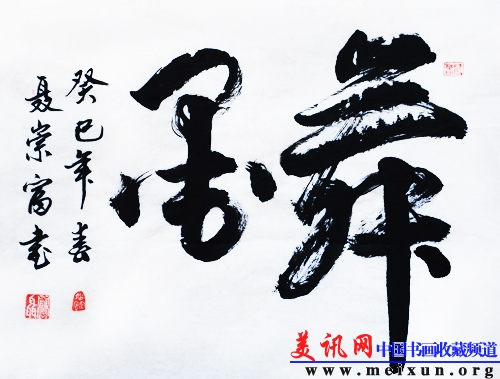 舞墨
癸巳年春
聂崇富书
美讯网 中国书画收藏频道
www.meixun.org